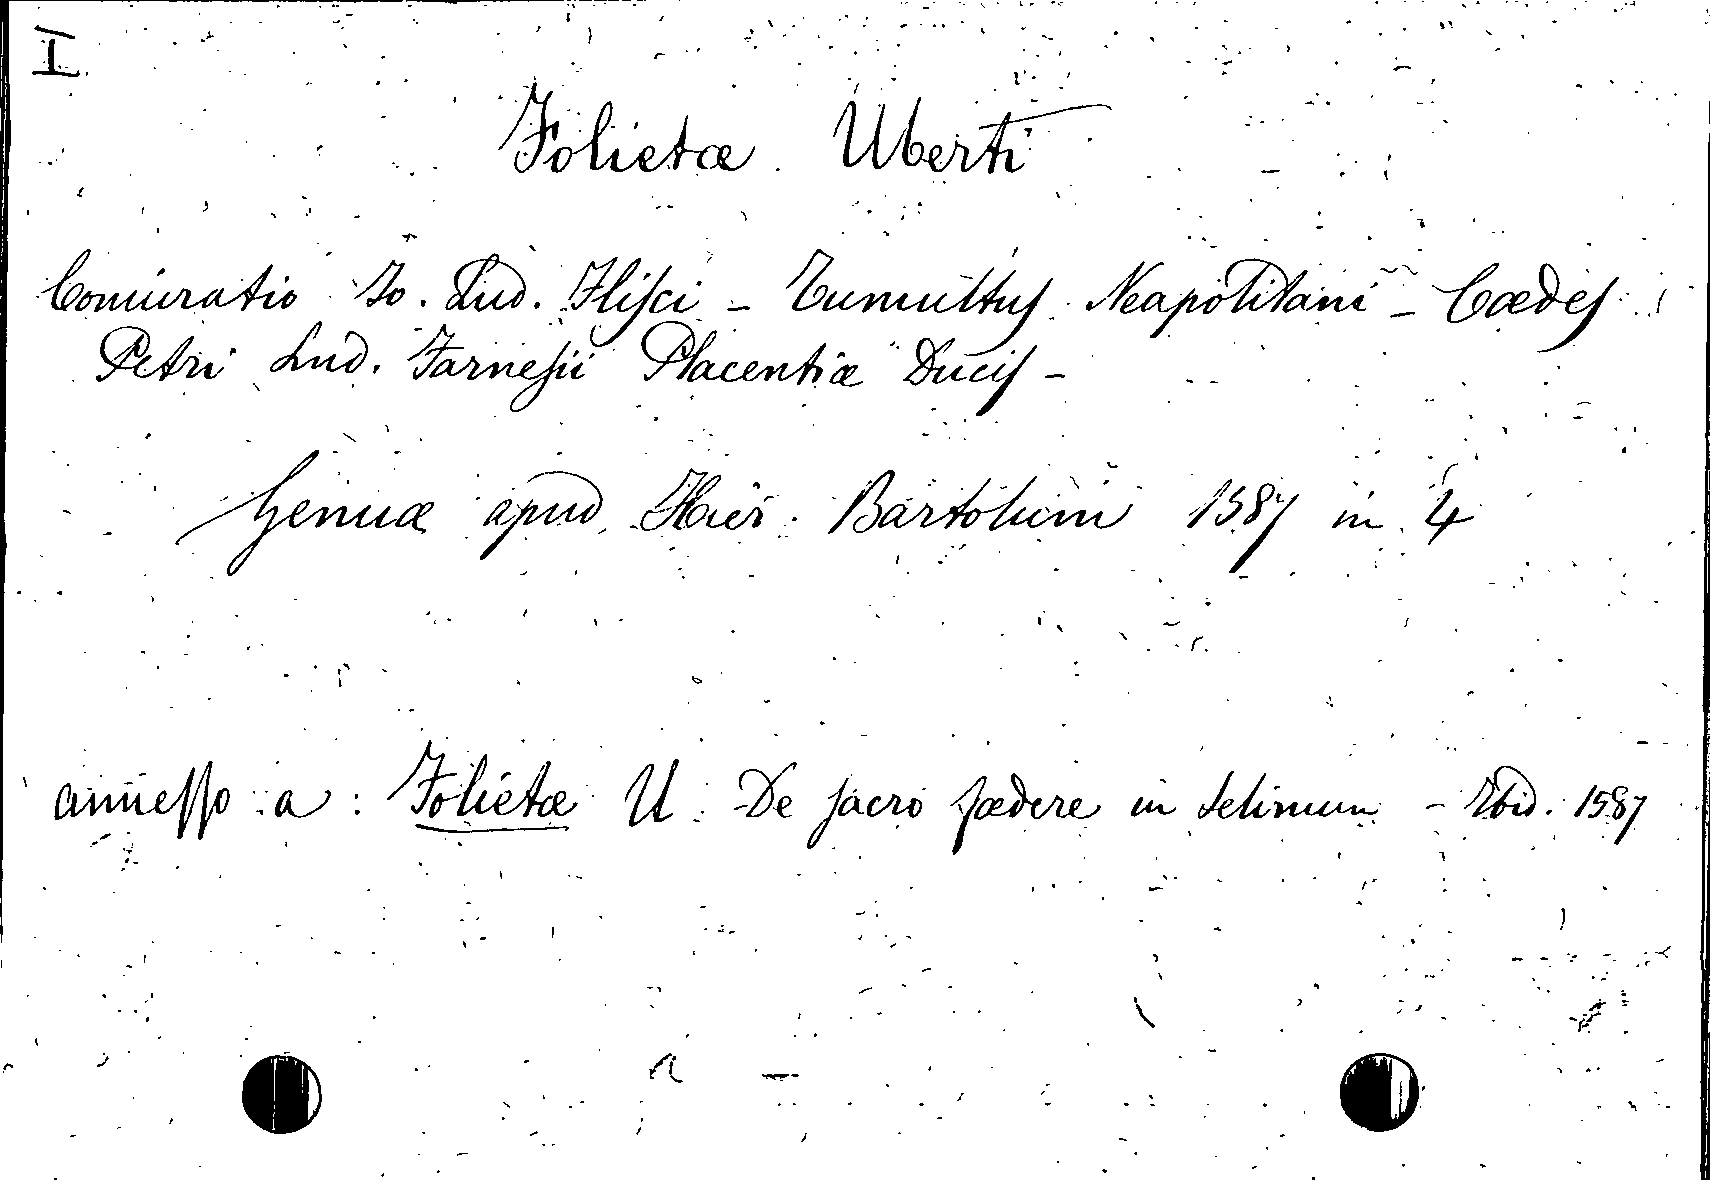 I
Folietæ Uberti
Coniuratio Io. Lud. Flisci - Tumultus Neapolitani - Cædes
Petri Lud. Farnesii Placentiæ Ducis -
Genuæ apud Hier. Bartolum 1587 in 4
annesso a: Folietæ U. De sacro fædere in Selimum - Ibid. 1587